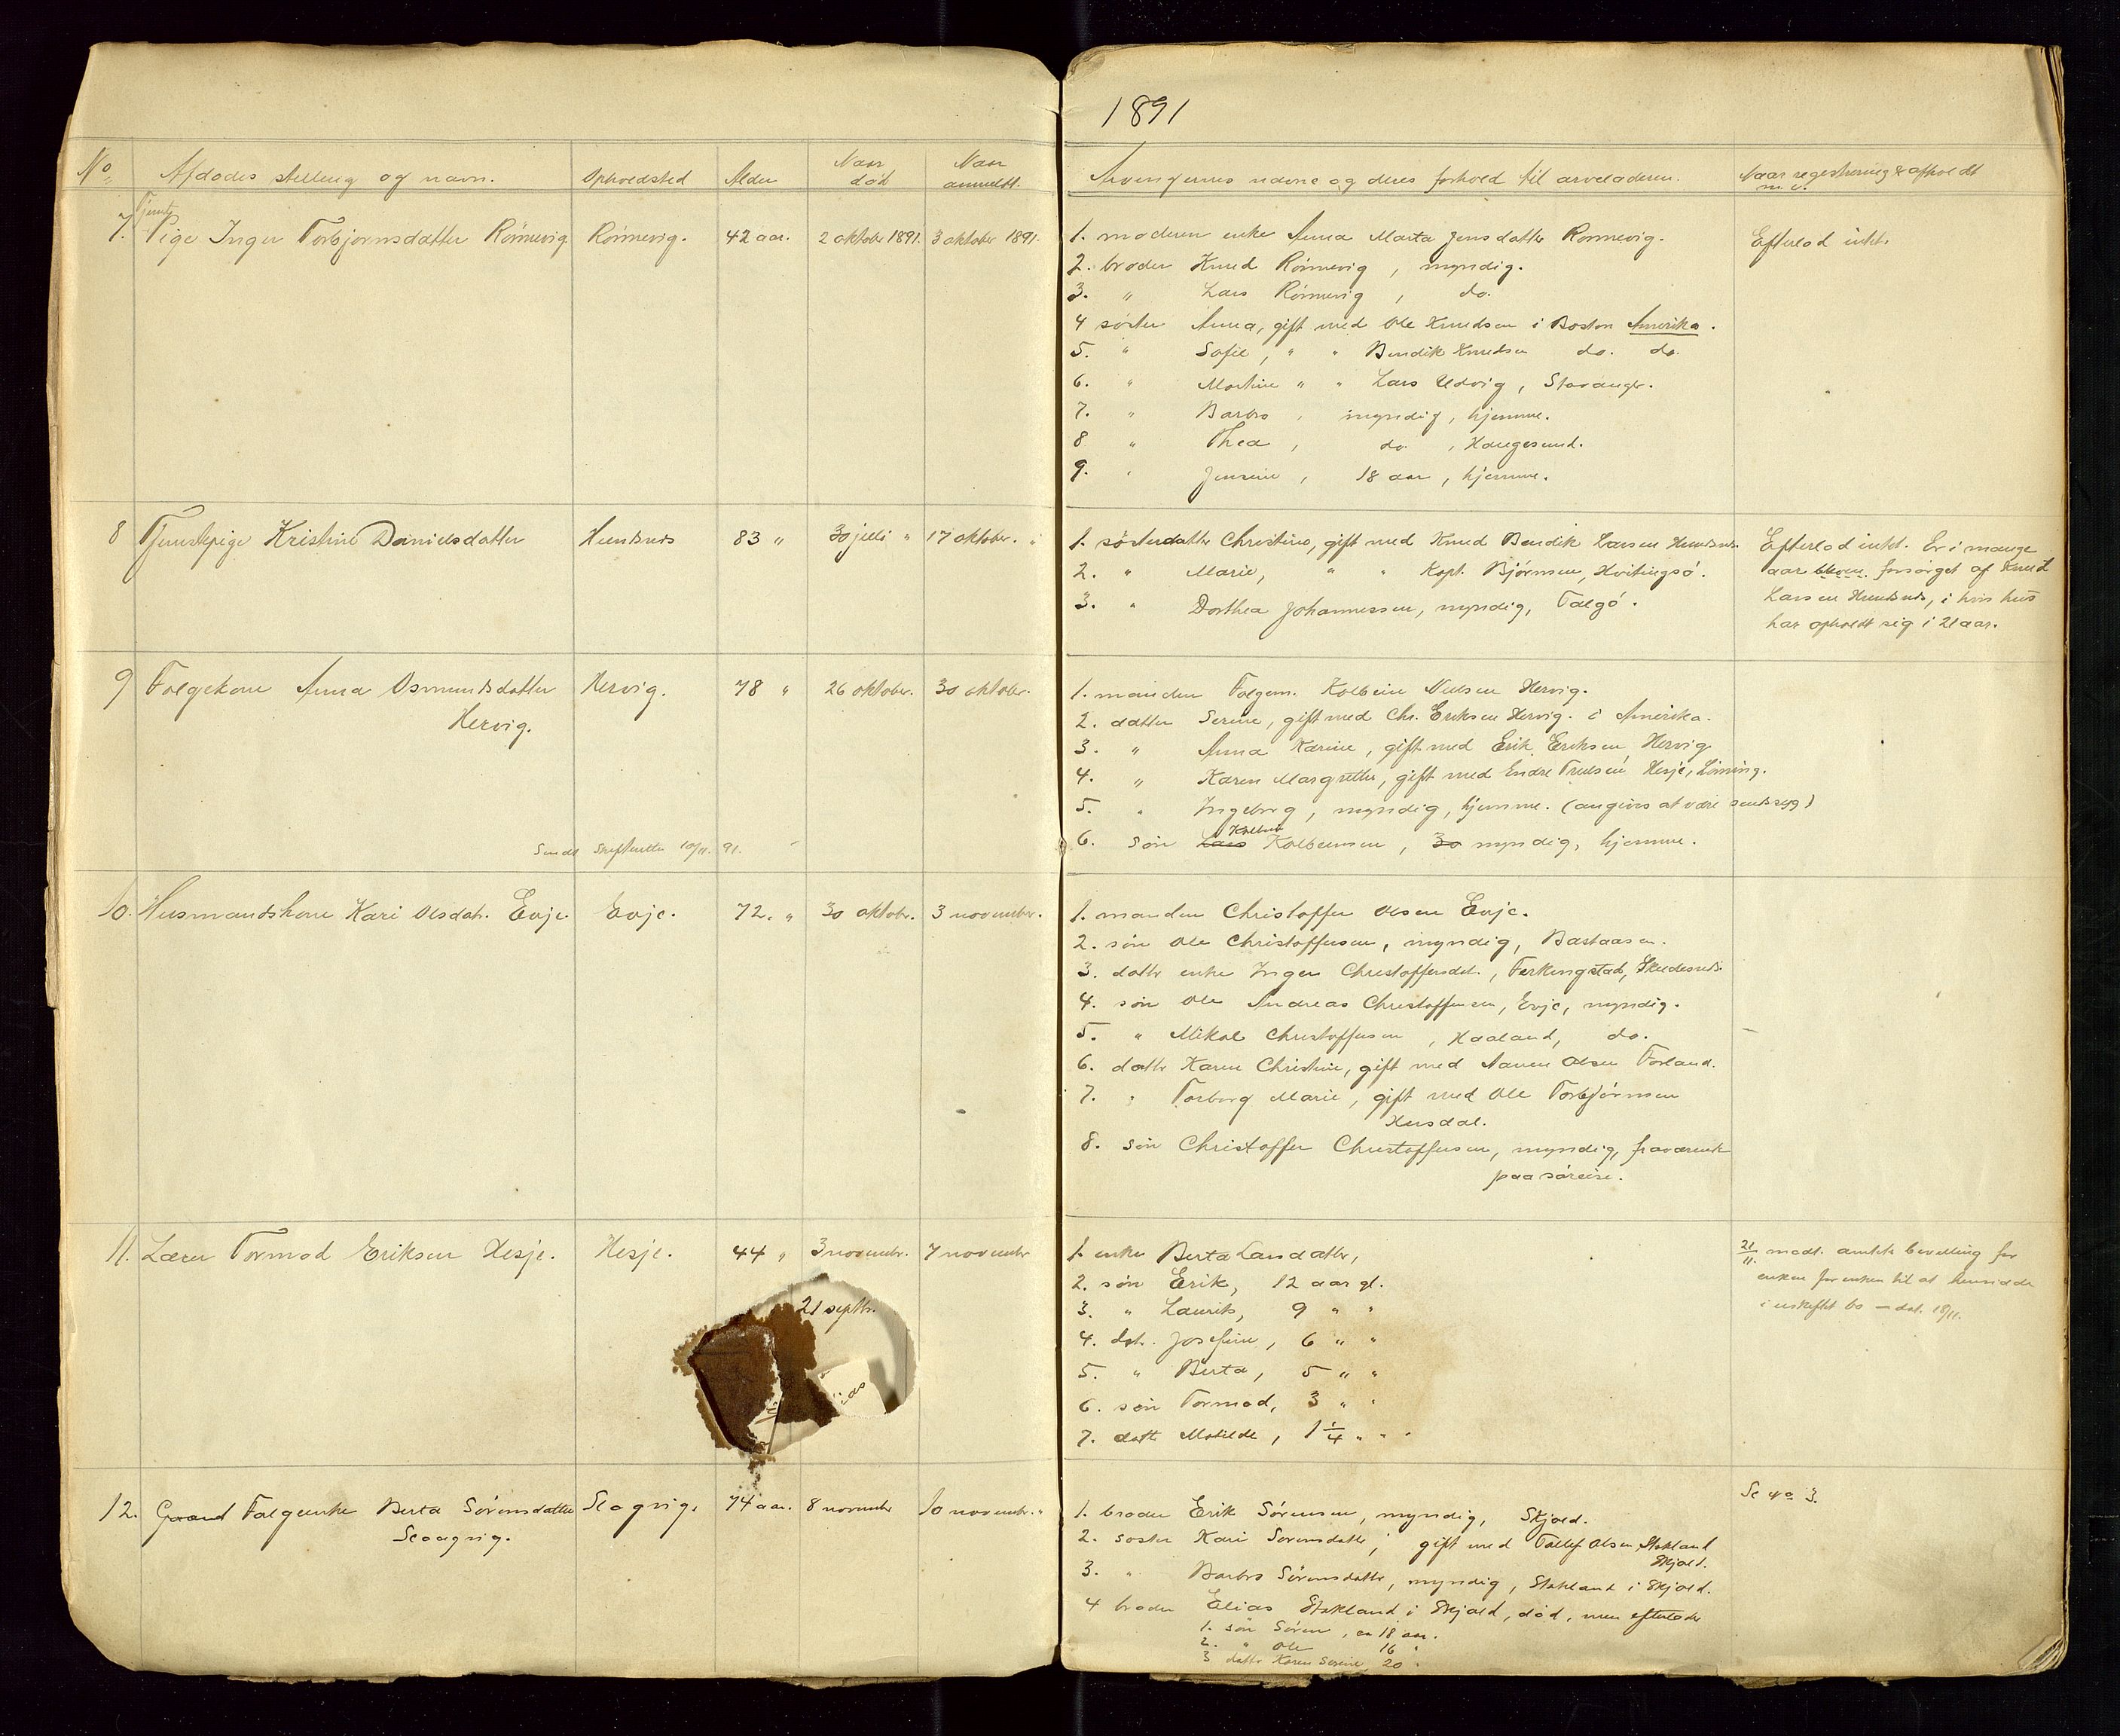 1891
No. Afdødes stilling og navn. Opholdsted Alder Naar død Naar anmeldt.
Arvingernes navne og deres forhold til arveladeren. Naar registrering er afholdt m. v.
7. Tjeneste Pige Inger Torbjørnsdatter Rønnevig Rønnevig. 42 aar. 2 oktober 1891. 3 oktober 1891.
1. moderen enke Anna Marta Jensdatter Rønnevig.
Efterlod intet.
2. broder Knud Rønnevig, myndig.
3. " Lars Rønnevig, do.
4 søster Anna, gift med Ole Knudsen i Boston Amerika.
5. " Sofie, " " Bendik Knudsen do. do.
6. " Martine " " Lars Udvig, Stavanger.
7. " Barbro, myndig, hjemme.
8 " Thea, do., Haugesund.
9. " Jensine, 18 aar, hjemme.
8 Tjenestepige Kristine Danielsdatter Hundsnes 83 " 30 juli " 17 oktober. "
1. søsterdatter Christine, gift med Knud Bendik Larsen Hundsnes.
2. " Marie, " " Kapt. Bjørnsen, Hvitingsø.
3. " Dorthea Johannessen, myndig, Talgø.
Efterlod intet. Er i mange
aar forsørget af Knud
Larsen Hundsnes, i hvis hus
har opholdt sig i 21 aar.
9 Folgekone Anna Osmundsdatter Hervig. 78 " 26 oktober. 30 oktober.
Hervig.
Sendt Skifteretten 10/11. 91.
1. manden Folgem. Kolbein Nilsen Hervig.
2. datter Serine, gift med Chr. Eriksen Hervig. i Amerika.
3. " Anna Karine, gift med Erik Eriksen Hervig
4. " Karen Margrethe, gift med Endre Trulsen Hesje,
5. " Ingeborg, myndig, hjemme. (angives at være sindssyg)
Kolbein
6. søn Lars Kolbeinsen, 30 myndig, hjemme.
10. Husmandskone Kari Olsdat. Evje Evje. 72. " 30 oktobr. 3 november.
1. manden Christoffer Olsen Evje.
2. søn Ole Christoffersen, myndig, Bastaasen.
3. dattr enke Inger Christoffersdat., Ferkingstad, Skudesnes.
4. søn Ole Andreas Christoffersen, Evje, myndig.
5. " Mikal Christoffersen, Haaland, do.
6. dattr Karen Christine, gift med Aanen Olsen Førland.
7. " Torborg Marie, gift med Ole Torbjørnsen
Husdal.
8. søn Christoffer Christoffersen, myndig, fraværende
paa søreise.
11. Lærer Tormod Eriksen Hesje. Hesje. 44 " 3 novembr. 7 november
21 septbr.
1. enke Berta Larsdatter,
2. søn Erik, 12 aar gl.
3. " Laurits, 9 " "
4. dat. Josefine, 6 " "
5. " Berta, 5 " "
6. søn Tormod, 3 " "
7. datt. Matilde, 1 1/4 " " "
21/11. modt. amtets bevilling for
enken for enken til at hensidde
i uskiftet bo – dat. 18/11.
12. Gaard Folgeenke Berta Sørensdatter Slogvig. 74 aar. 8 november 10 novembr. "
Sloagvig.
1. broder Erik Sørensen, myndig, Skjold.
2. søster Kari Sørensdatter, gift med Tollef Olsen Stakland
Skjold.
3. " Barbro Sørensdatter, myndig, Stakland i Skjold.
4 broder Elias Stakland i Skjold, død, men efterlader
1. søn Søren, ca 18 aar.
2. " Ole 16 "
3 dattr Karen Serine 20 "
Se no 3.